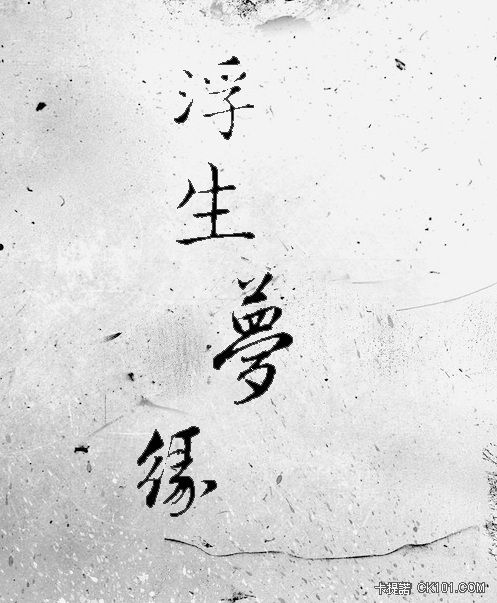 浮
生
夢
緣
卡提諾 CK101.COM